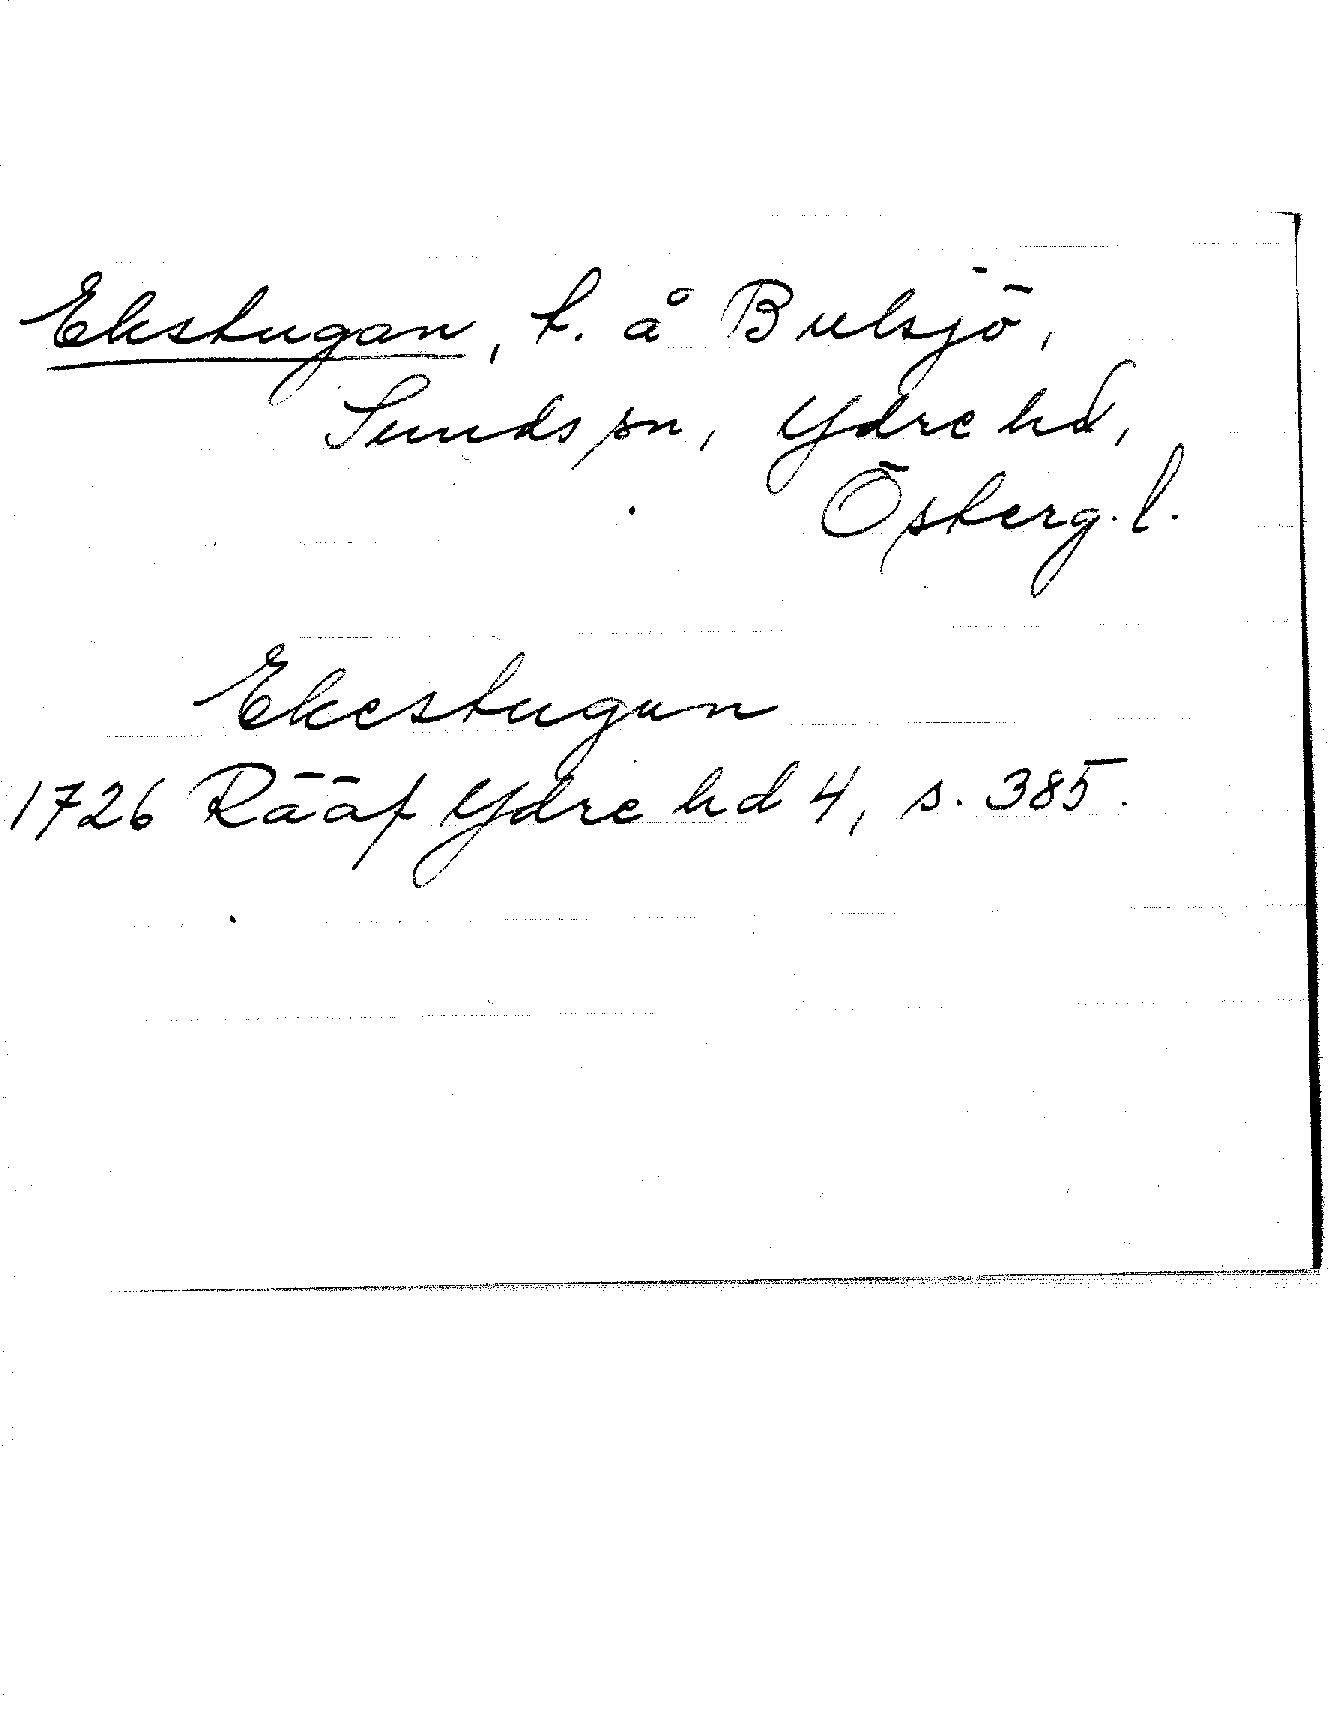 Ekstugan, t. å Bulsjö,
Sunds sn, Ydre hd,
Österg. l.
Ekestugun
1726 Rääf Ydre hd 4, s. 385.